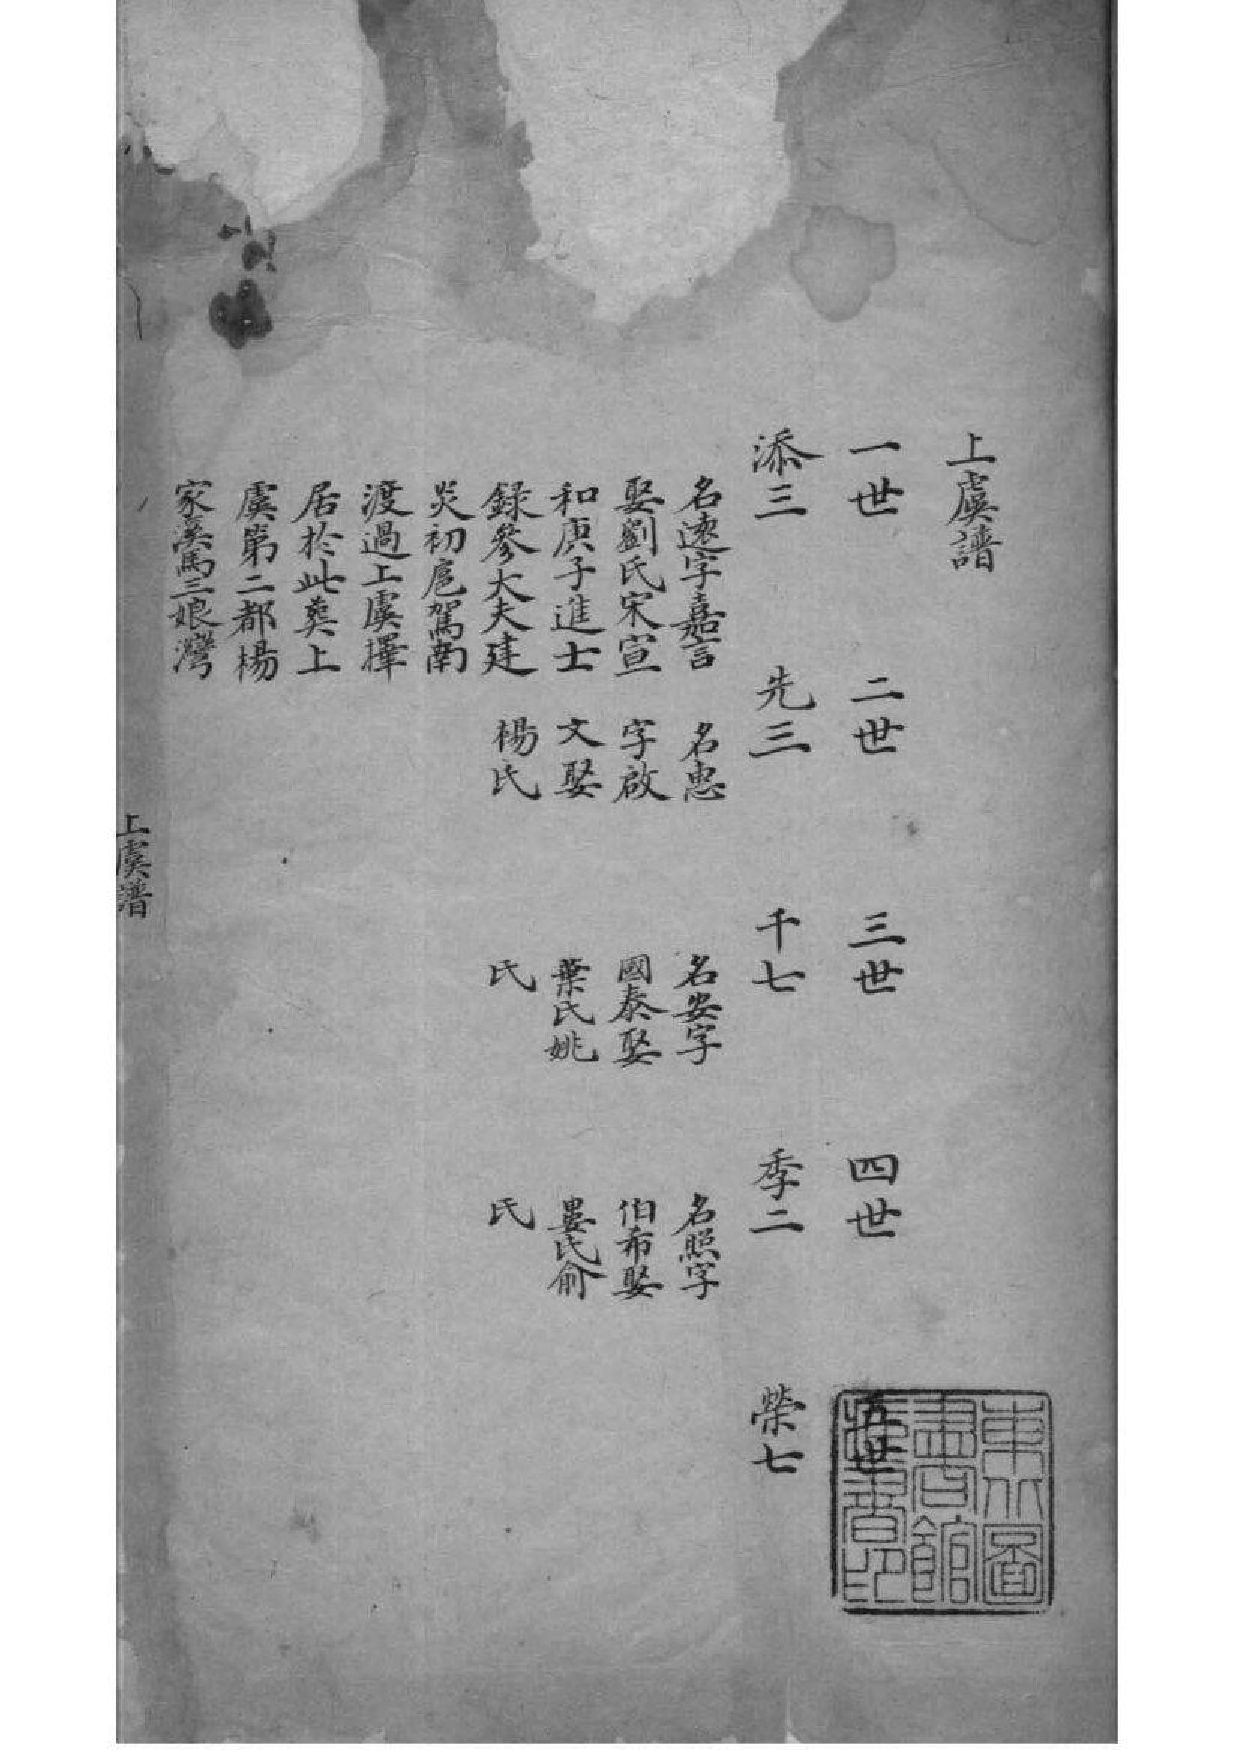 上虞譜
一世
二世
三世
四世
五世
添三
先三
千七
季二
榮七
名遠字嘉言
娶劉氏宋宣
和庚子進士
録參大夫建
炎初扈駕南
渡過上虞擇
居於此葬上
虞第二都楊
家溪馬三娘灣
名忠
字啟
文娶
楊氏
名安字
國泰娶
葉氏姚
氏
名照字
伯希娶
婁氏俞
氏
上虞譜
東北圖
書館
藏書印